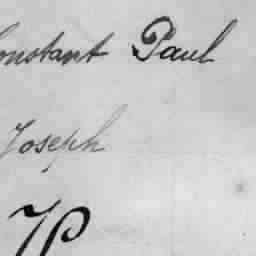 onstant Paul
Joseph